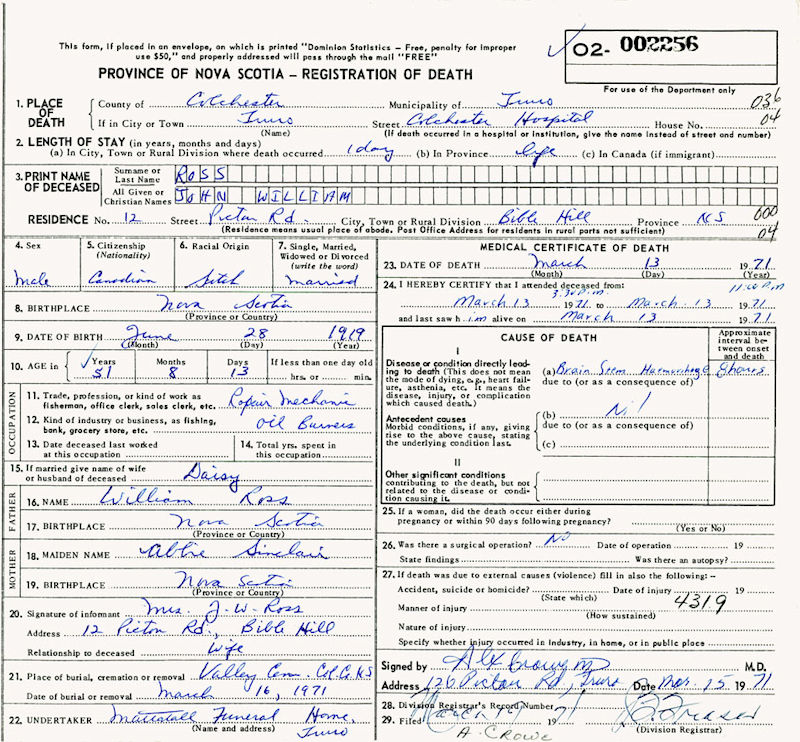 This form, if placed in an envelope, on which is printed "Dominion Statistics – Free, penalty for improper
use $50," and properly addressed will pass through the mail "FREE"
O2- 002256
PROVINCE OF NOVA SCOTIA – REGISTRATION OF DEATH
For use of the Department only
1. PLACE OF DEATH
County of Colchester Municipality of Truro 036
If in City or Town Truro Street Colchester Hospital House No. 04
(Name) (If death occurred in a hospital or institution, give the name instead of street and number)
2. LENGTH OF STAY (in years, months and days)
(a) In City, Town or Rural Division where death occurred 1 day (b) In Province life (c) In Canada (if immigrant)
3. PRINT NAME OF DECEASED
Surname or Last Name ROSS
All Given or Christian Names JOHN WILLIAM
RESIDENCE No. 12 Street Picton Rd. City, Town or Rural Division Bible Hill Province NS 600
(Residence means usual place of abode. Post Office Address for residents in rural parts not sufficient) 04
4. Sex
Male
5. Citizenship (Nationality)
Canadian
6. Racial Origin
Scotch
7. Single, Married, Widowed or Divorced (write the word)
Married
8. BIRTHPLACE Nova Scotia
(Province or Country)
9. DATE OF BIRTH June 28 1919
(Month) (Day) (Year)
10. AGE in Years 51 Months 8 Days 13 If less than one day old
hrs. or min.
OCCUPATION
11. Trade, profession, or kind of work as fisherman, office clerk, sales clerk, etc. Repair Mechanic
12. Kind of industry or business, as fishing, bank, grocery store, etc. Oil Burners
13. Date deceased last worked at this occupation
14. Total yrs. spent in this occupation
15. If married give name of wife or husband of deceased Daisy
FATHER
16. NAME William Ross
17. BIRTHPLACE Nova Scotia
(Province or Country)
MOTHER
18. MAIDEN NAME Abbie Sinclair
19. BIRTHPLACE Nova Scotia
(Province or Country)
20. Signature of informant Mrs. J. W. Ross
Address 12 Picton Rd., Bible Hill
Relationship to deceased Wife
21. Place of burial, cremation or removal Valley Cem. Col. Co. NS
Date of burial or removal March 16, 1971
22. UNDERTAKER Mattatall Funeral Home,
(Name and address) Truro
MEDICAL CERTIFICATE OF DEATH
23. DATE OF DEATH March 13 1971
(Month) (Day) (Year)
24. I HEREBY CERTIFY that I attended deceased from:
3:30 P.m 11:00 P.m
March 13 1971 to March 13 1971
and last saw him alive on March 13 1971
CAUSE OF DEATH
Approximate interval between onset and death
I
Disease or condition directly leading to death (This does not mean the mode of dying, e.g., heart failure, asthenia, etc. It means the disease, injury, or complication which caused death.)
(a) Brain Stem Haemorrhage 8 hours
due to (or as a consequence of)
Antecedent causes
Morbid conditions, if any, giving rise to the above cause, stating the underlying condition last.
(b) Nil
due to (or as a consequence of)
(c)
II
Other significant conditions
contributing to the death, but not related to the disease or condition causing it.
25. If a woman, did the death occur either during
pregnancy or within 90 days following pregnancy?
(Yes or No)
26. Was there a surgical operation? No Date of operation 19
State findings Was there an autopsy?
27. If death was due to external causes (violence) fill in also the following:–
Accident, suicide or homicide? Date of injury 19
(State which) 4319
Manner of injury
(How sustained)
Nature of injury
Specify whether injury occurred in industry, in home, or in public place
Signed by Alx Crowe MD M.D.
Address 126 Picton Rd, Truro Date Mar. 15 1971
28. Division Registrar's Record Number
29. Filed March 19 71 Fraser
A. CROWE (Division Registrar)